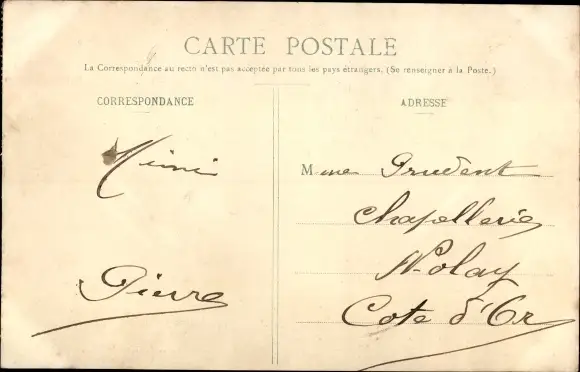 CARTE POSTALE
La Correspondance au recto n'est pas acceptée par tous les pays étrangers. (Se renseigner à la Poste.)
CORRESPONDANCE
Mimi
Pierre
ADRESSE
Mme Prudent
Chapellerie
Nolay
Cote d'Or